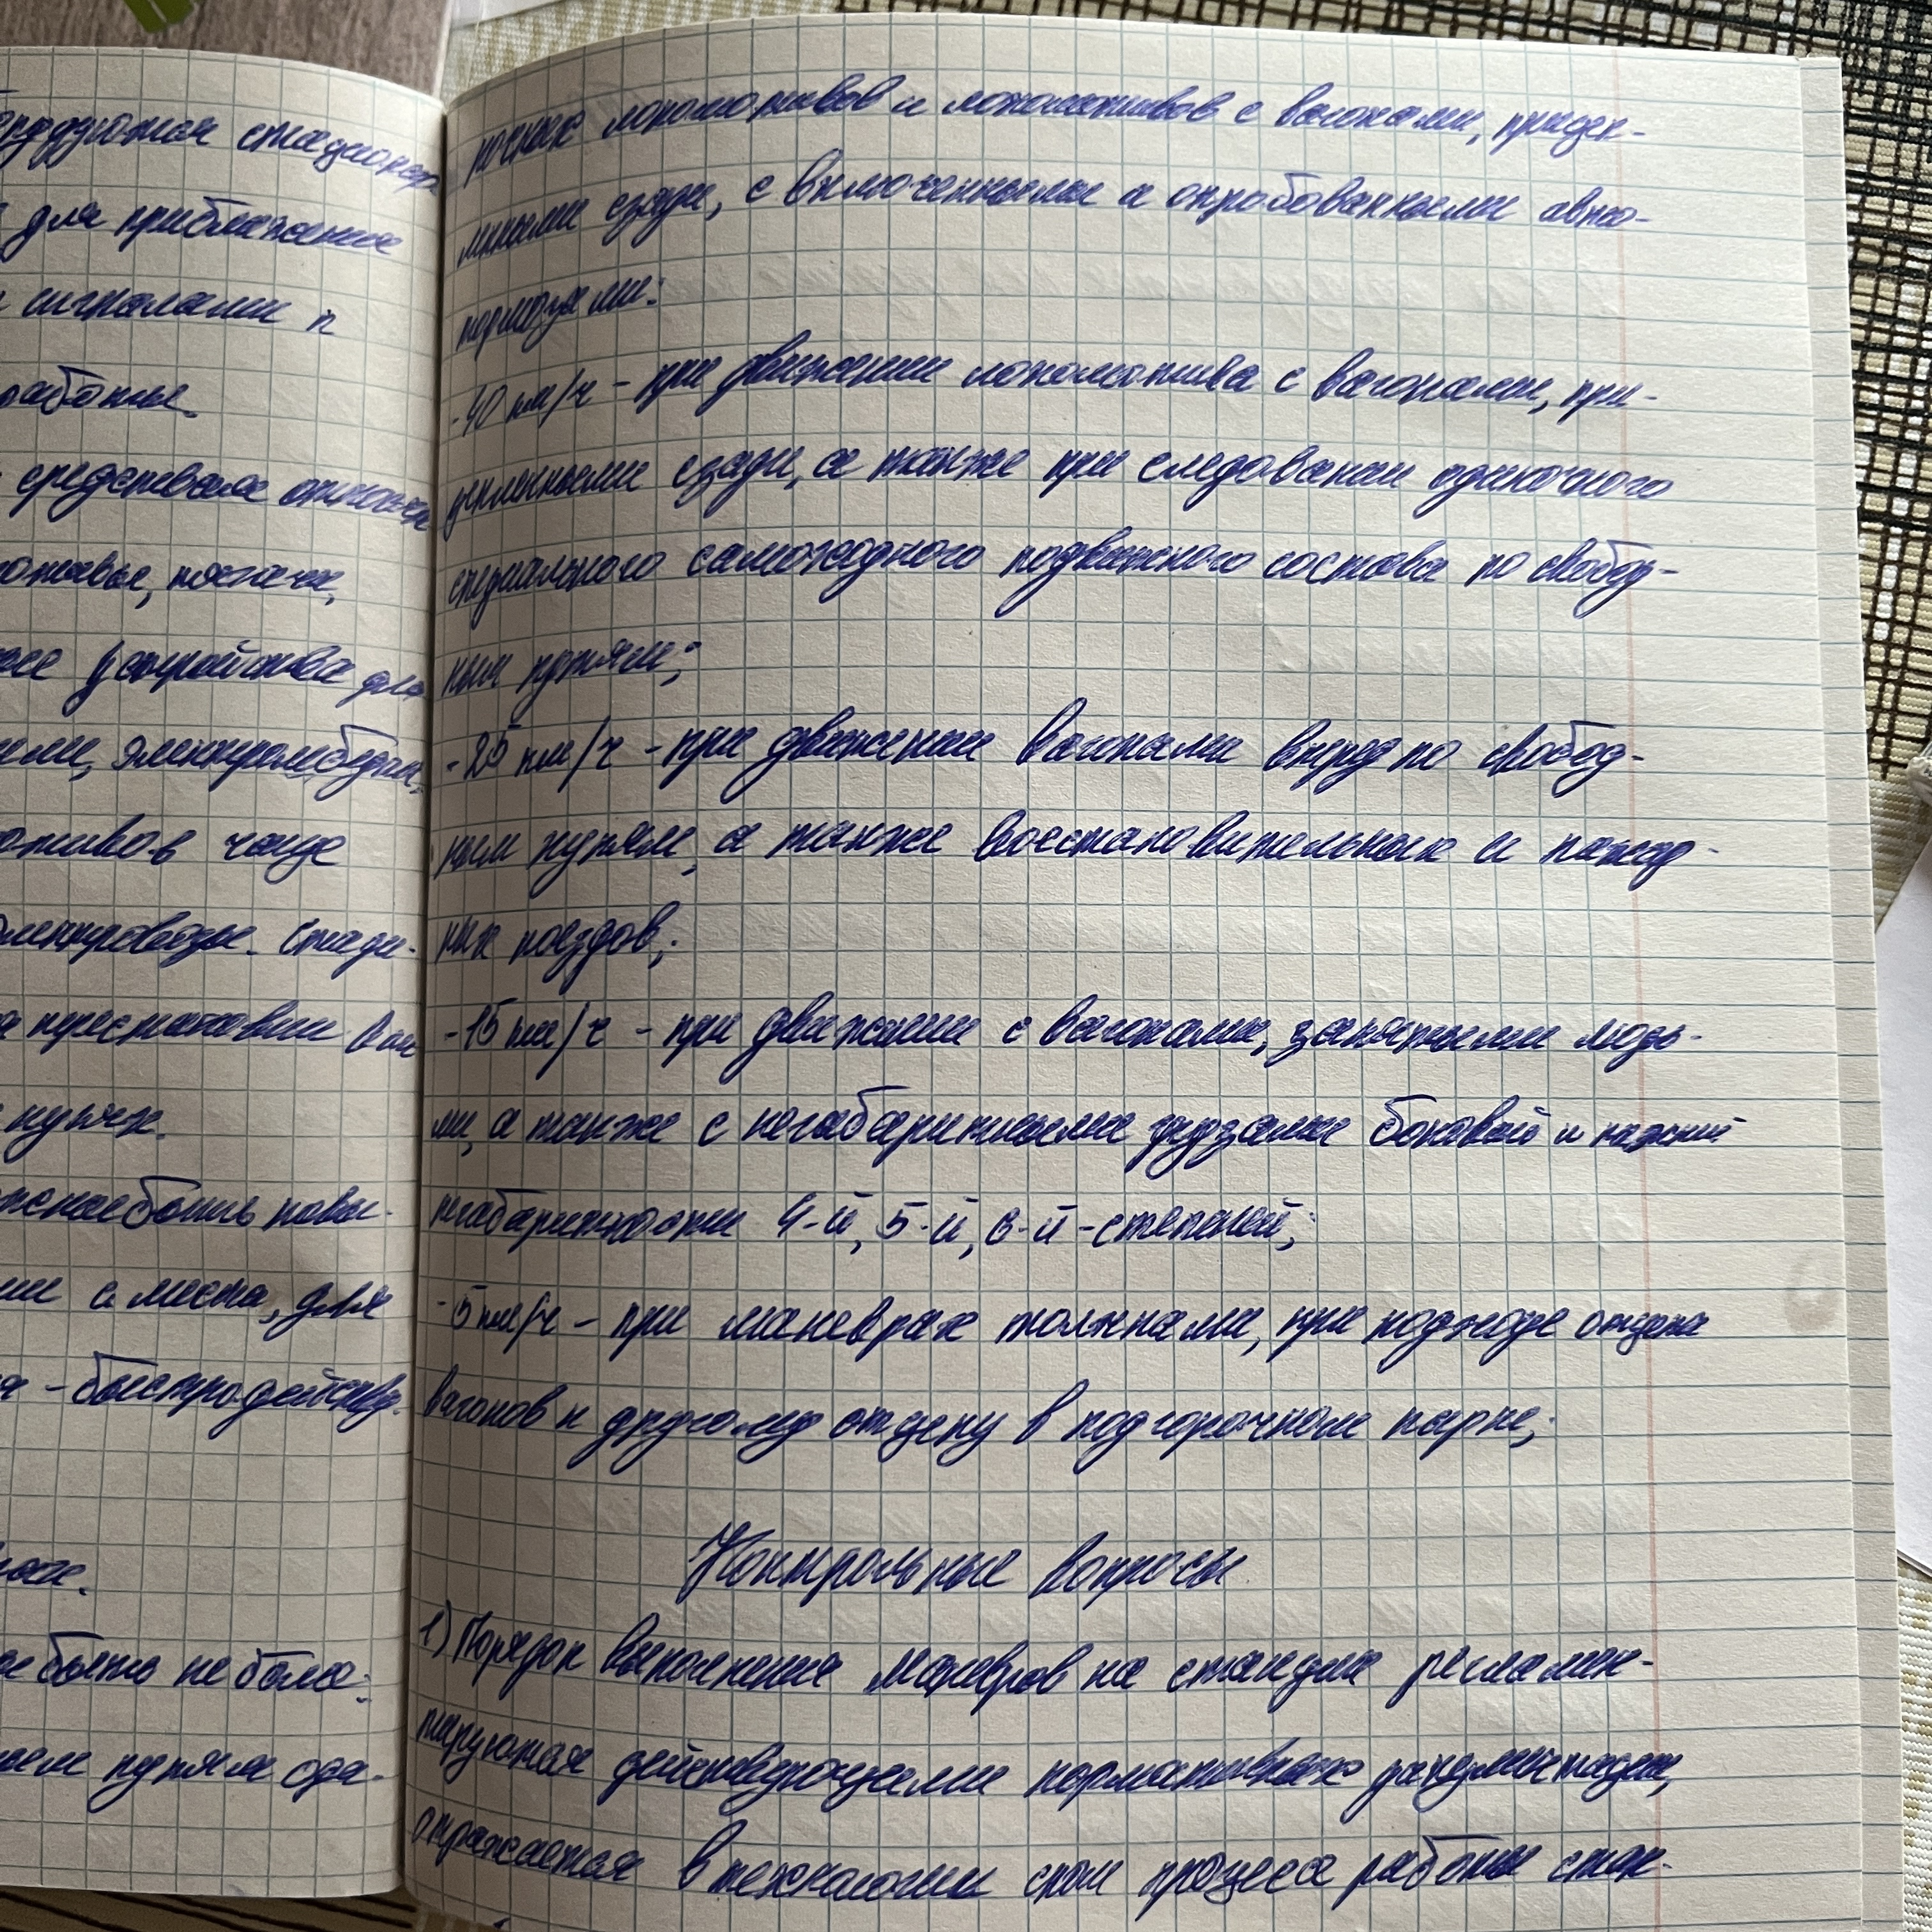 ерруются стационар
для приближения
сигналами к
работы.
средствам относят
отивы, тягачи,
устройства для
ями, электролебедки,
отивов чаще
электровозы. Стади-
перестановки ваг
путях.
быть повы-
с места, для
- быстродейству.
быть не более:
путям оди-
ночных локомотивов и локомотивов с вагонами, прицеп-
лиными сзади, с включенными и опробованными авто-
тормозами:
-40 км/ч - при движении локомотива с вагонами, при-
цепленными сзади, а также при следовании одиночного
специального самоходного подвижного состава по свобод-
ным путям;
-25 км/ч - при движении вагонами вперед по свобод-
ным путям, а также восстановительных и пожар-
ных поездов;
-15 км/ч - при движении с вагонами, занятыми людь-
ми, а также с негабаритными грузами боковой и нижней
негабаритности 4-й, 5-й, 6-й-степеней;
-5 км/ч - при маневрах толчками, при подходе отцепа
вагонов к другому отцепу в подгорочном парке;
Контрольные вопросы
1) Порядок выполнения маневров на станции регламен-
тируются действующими нормативных документации,
отражается в технологии процесса работы стан-